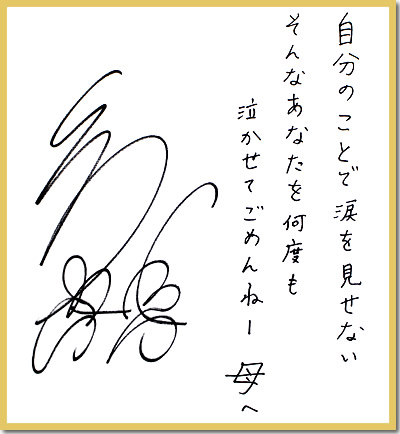 自分のことで涙を見せない
そんなあなたを何度も
泣かせてごめんねー
母へ